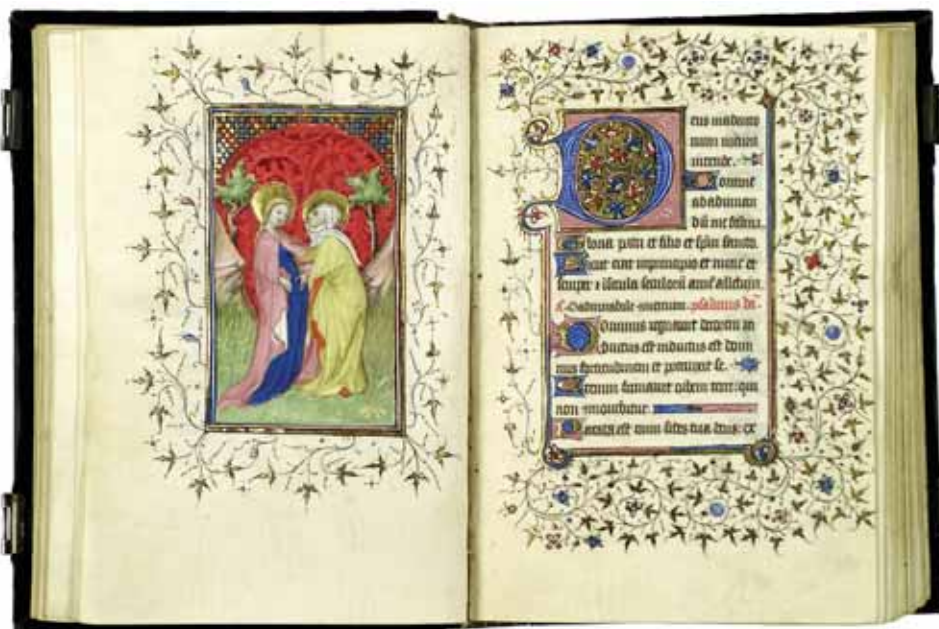 eus in adiuto
rium meum
intende.
Domine
ad adiuvan
dū me festina
Gloria patri et filio et spiritui sancto.
Sicut erat in principio et nunc et
semper ⁊ in secula seculorū amē alleluya.
O admirabile psalmus dd.
Dominus regnavit decorem in
dutus est indutus est domi
nus fortitudinem et precinxit se.
Etenim firmavit orbem terre qui
non movebitur
Parata est sedes tua deus ex